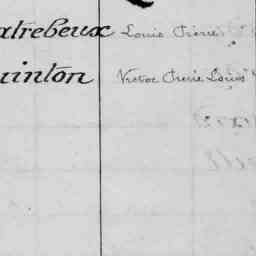 atrebeux Louis Pierre
uinton Victor Pierre Louis